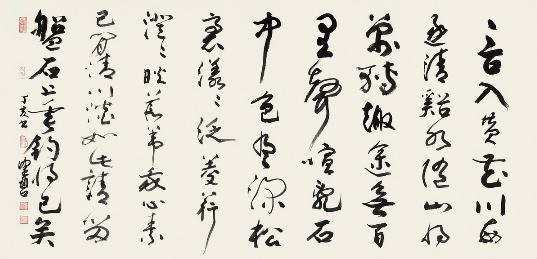 言入黃花川每
逐清谿水隨山將
萬轉趣途無百
里聲喧亂石
中色靜深松
裏漾〻泛菱荇
澄〻映葭葦我心素
已閒清川澹如此請留
盤石上垂釣將已矣
丁亥